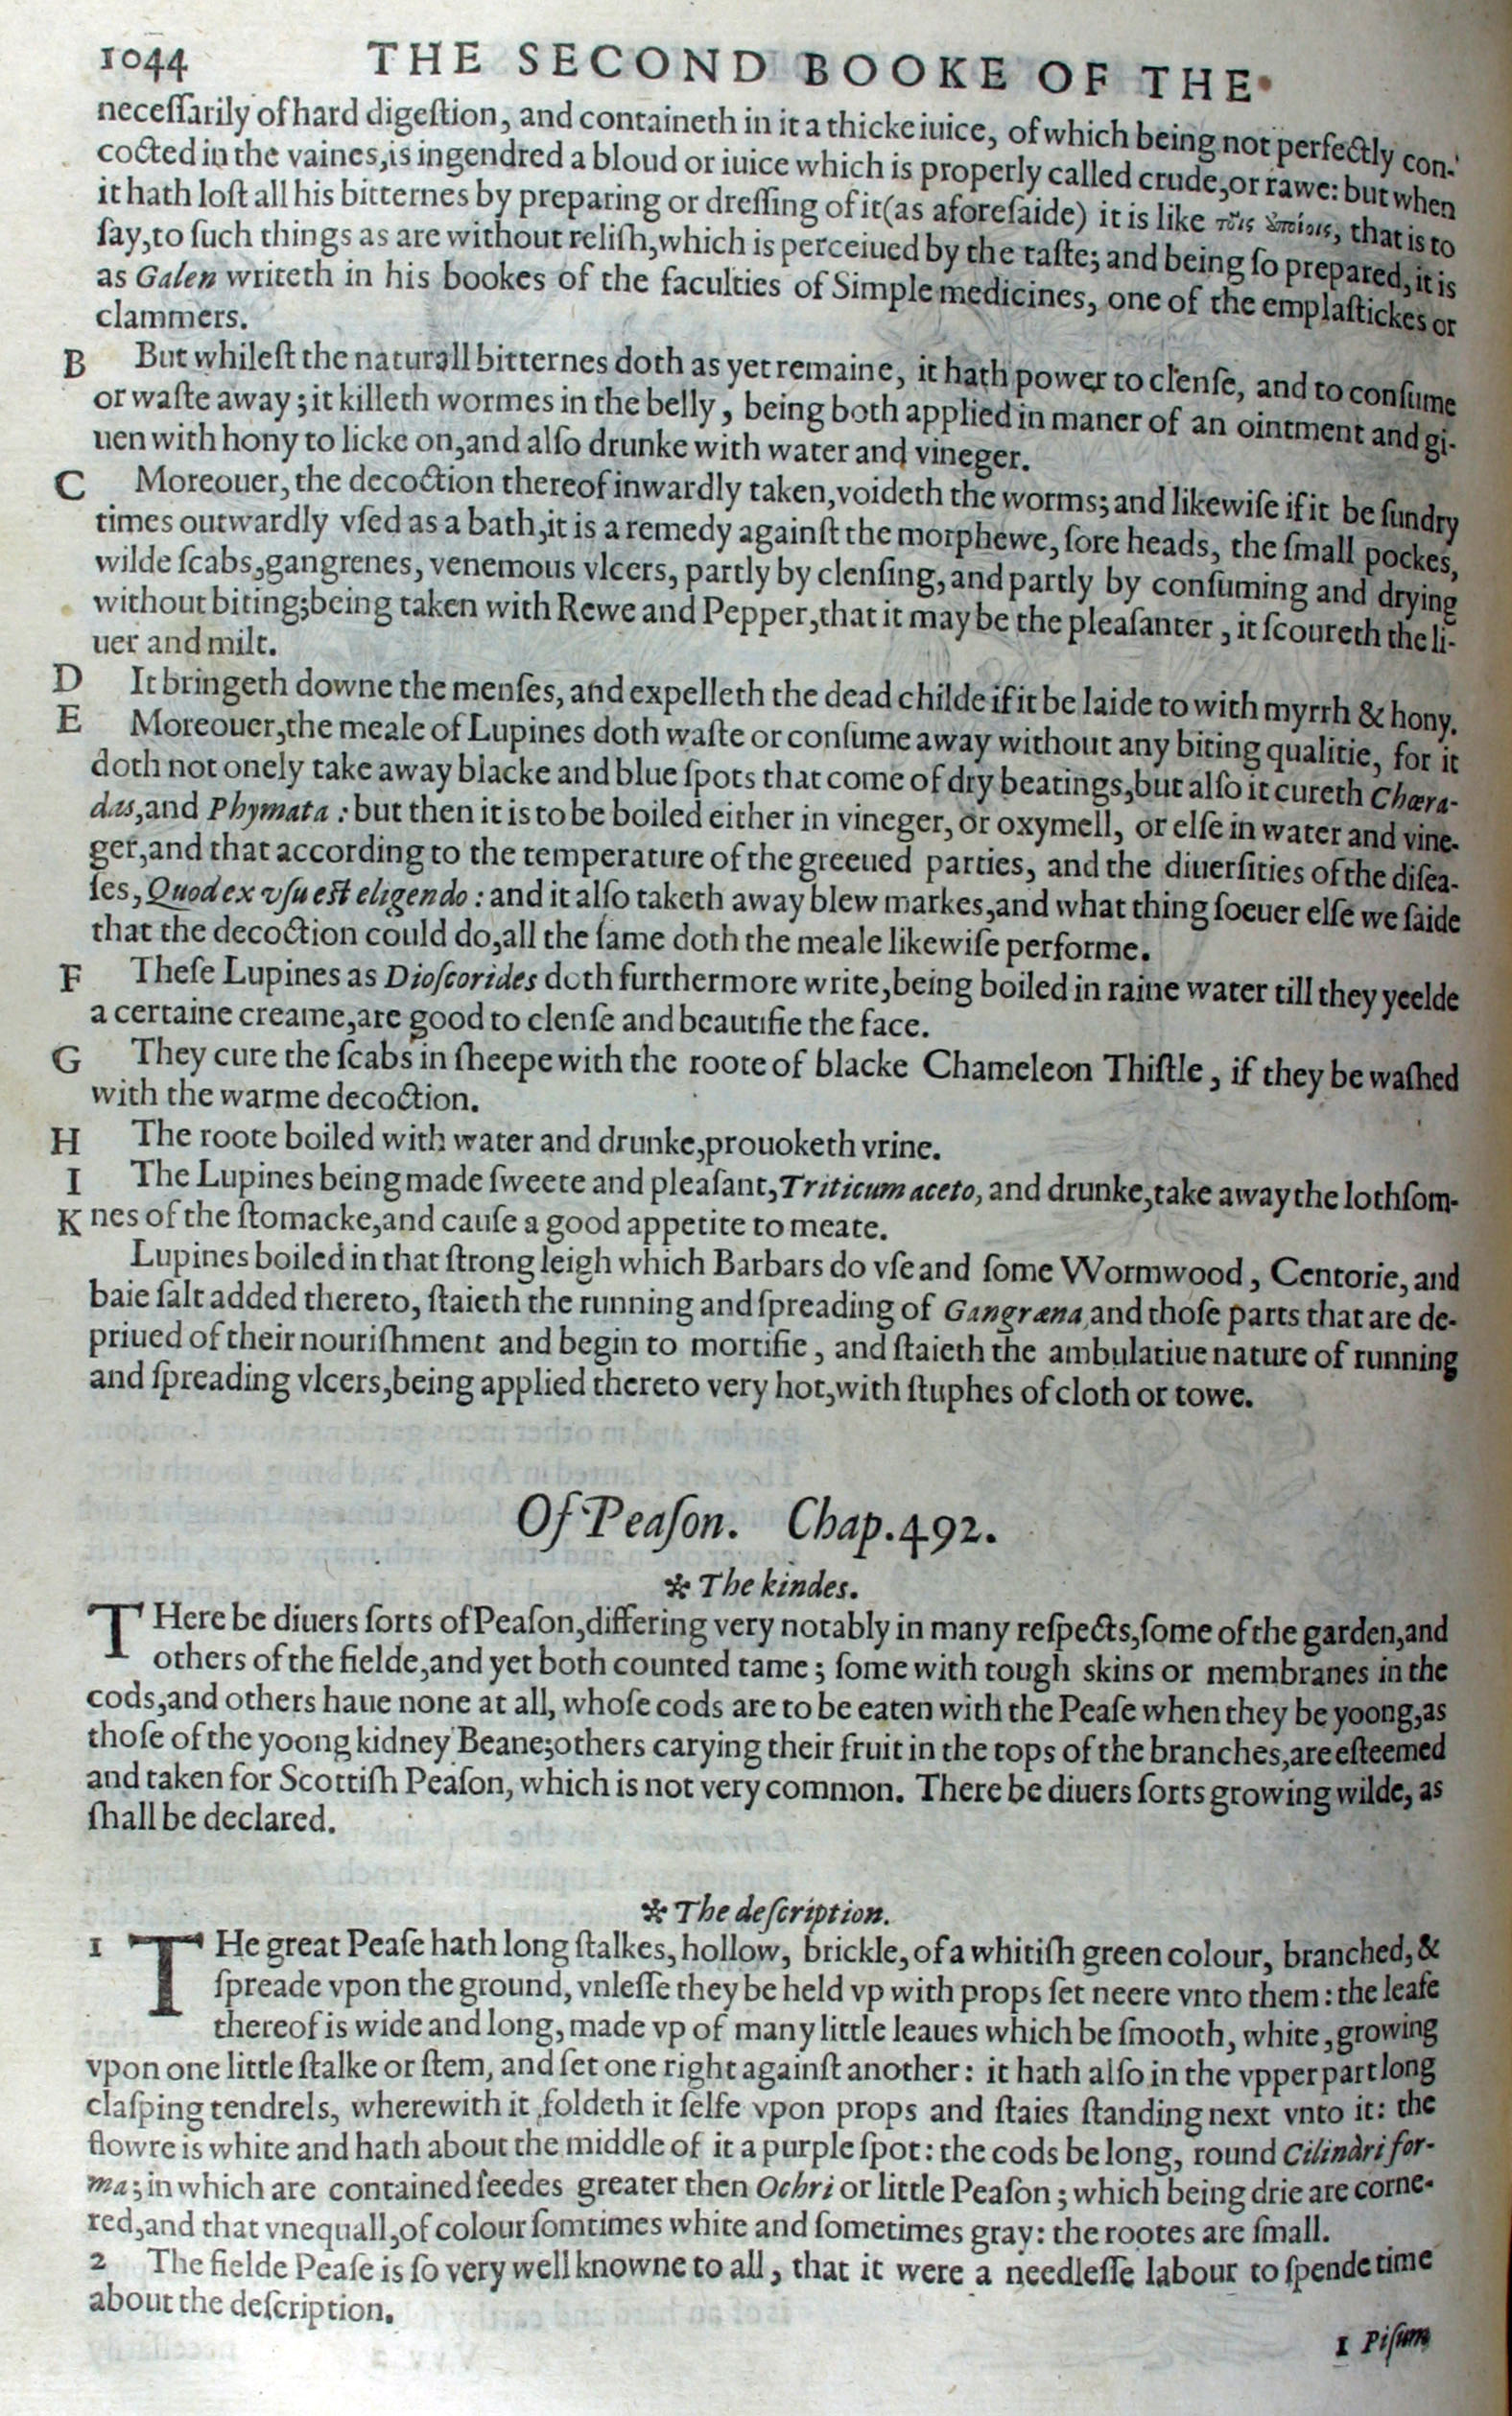 1044 THE SECOND BOOKE OF THE
neceſſarily of hard digeſtion, and containeth in it a thicke iuice, of which being not perfectly con-
cocted in the vaines, is ingendred a bloud or iuice which is properly called crude, or rawe: but when
it hath loſt all his bitternes by preparing or dreſſing of it (as aforeſaide) it is like τοῖς ἀποίοις, that is to
ſay, to ſuch things as are without reliſh, which is perceiued by the taſte; and being ſo prepared, it is
as Galen writeth in his bookes of the faculties of Simple medicines, one of the emplaſtickes or
clammers.
B But whileſt the naturall bitternes doth as yet remaine, it hath power to clenſe, and to conſume
or waſte away; it killeth wormes in the belly, being both applied in maner of an ointment and gi-
uen with hony to licke on, and alſo drunke with water and vineger.
C Moreouer, the decoction thereof inwardly taken, voideth the worms; and likewiſe if it be ſundry
times outwardly vſed as a bath, it is a remedy againſt the morphewe, ſore heads, the ſmall pockes,
wilde ſcabs, gangrenes, venemous vlcers, partly by clenſing, and partly by conſuming and drying
without biting; being taken with Rewe and Pepper, that it may be the pleaſanter, it ſcoureth the li-
uer and milt.
D It bringeth downe the menſes, and expelleth the dead childe if it be laide to with myrrh & hony.
E Moreouer, the meale of Lupines doth waſte or conſume away without any biting qualitie, for it
doth not onely take away blacke and blue ſpots that come of dry beatings, but alſo it cureth Chœra-
das, and Phymata: but then it is to be boiled either in vineger, or oxymell, or elſe in water and vine-
ger, and that according to the temperature of the greeued parties, and the diuerſities of the diſea-
ſes, Quod ex vſu eſt eligendo: and it alſo taketh away blew markes, and what thing ſoeuer elſe we ſaide
that the decoction could do, all the ſame doth the meale likewiſe performe.
F Theſe Lupines as Dioſcorides doth furthermore write, being boiled in raine water till they yeelde
a certaine creame, are good to clenſe and beautifie the face.
G They cure the ſcabs in ſheepe with the roote of blacke Chameleon Thiſtle, if they be waſhed
with the warme decoction.
H The roote boiled with water and drunke, prouoketh vrine.
I The Lupines being made ſweete and pleaſant, Triticum aceto, and drunke, take away the lothſom-
K nes of the ſtomacke, and cauſe a good appetite to meate.
Lupines boiled in that ſtrong leigh which Barbars do vſe and ſome Wormwood, Centorie, and
baie ſalt added thereto, ſtaieth the running and ſpreading of Gangræna, and thoſe parts that are de-
priued of their nouriſhment and begin to mortifie, and ſtaieth the ambulatiue nature of running
and ſpreading vlcers, being applied thereto very hot, with ſtuphes of cloth or towe.
Of Peaſon. Chap. 492.
✲ The kindes.
THere be diuers ſorts of Peaſon, differing very notably in many reſpects, ſome of the garden, and
others of the fielde, and yet both counted tame; ſome with tough skins or membranes in the
cods, and others haue none at all, whoſe cods are to be eaten with the Peaſe when they be yoong, as
thoſe of the yoong kidney Beane; others carying their fruit in the tops of the branches, are eſteemed
and taken for Scottiſh Peaſon, which is not very common. There be diuers ſorts growing wilde, as
ſhall be declared.
✲ The deſcription.
1 THe great Peaſe hath long ſtalkes, hollow, brickle, of a whitiſh green colour, branched, &
ſpreade vpon the ground, vnleſſe they be held vp with props ſet neere vnto them: the leafe
thereof is wide and long, made vp of many little leaues which be ſmooth, white, growing
vpon one little ſtalke or ſtem, and ſet one right againſt another: it hath alſo in the vpper part long
claſping tendrels, wherewith it foldeth it ſelfe vpon props and ſtaies ſtanding next vnto it: the
flowre is white and hath about the middle of it a purple ſpot: the cods be long, round Cilindri for-
ma; in which are contained ſeedes greater then Ochri or little Peaſon; which being drie are corne-
red, and that vnequall, of colour ſomtimes white and ſometimes gray: the rootes are ſmall.
2 The fielde Peaſe is ſo very well knowne to all, that it were a needleſſe labour to ſpende time
about the deſcription.
1 Piſum